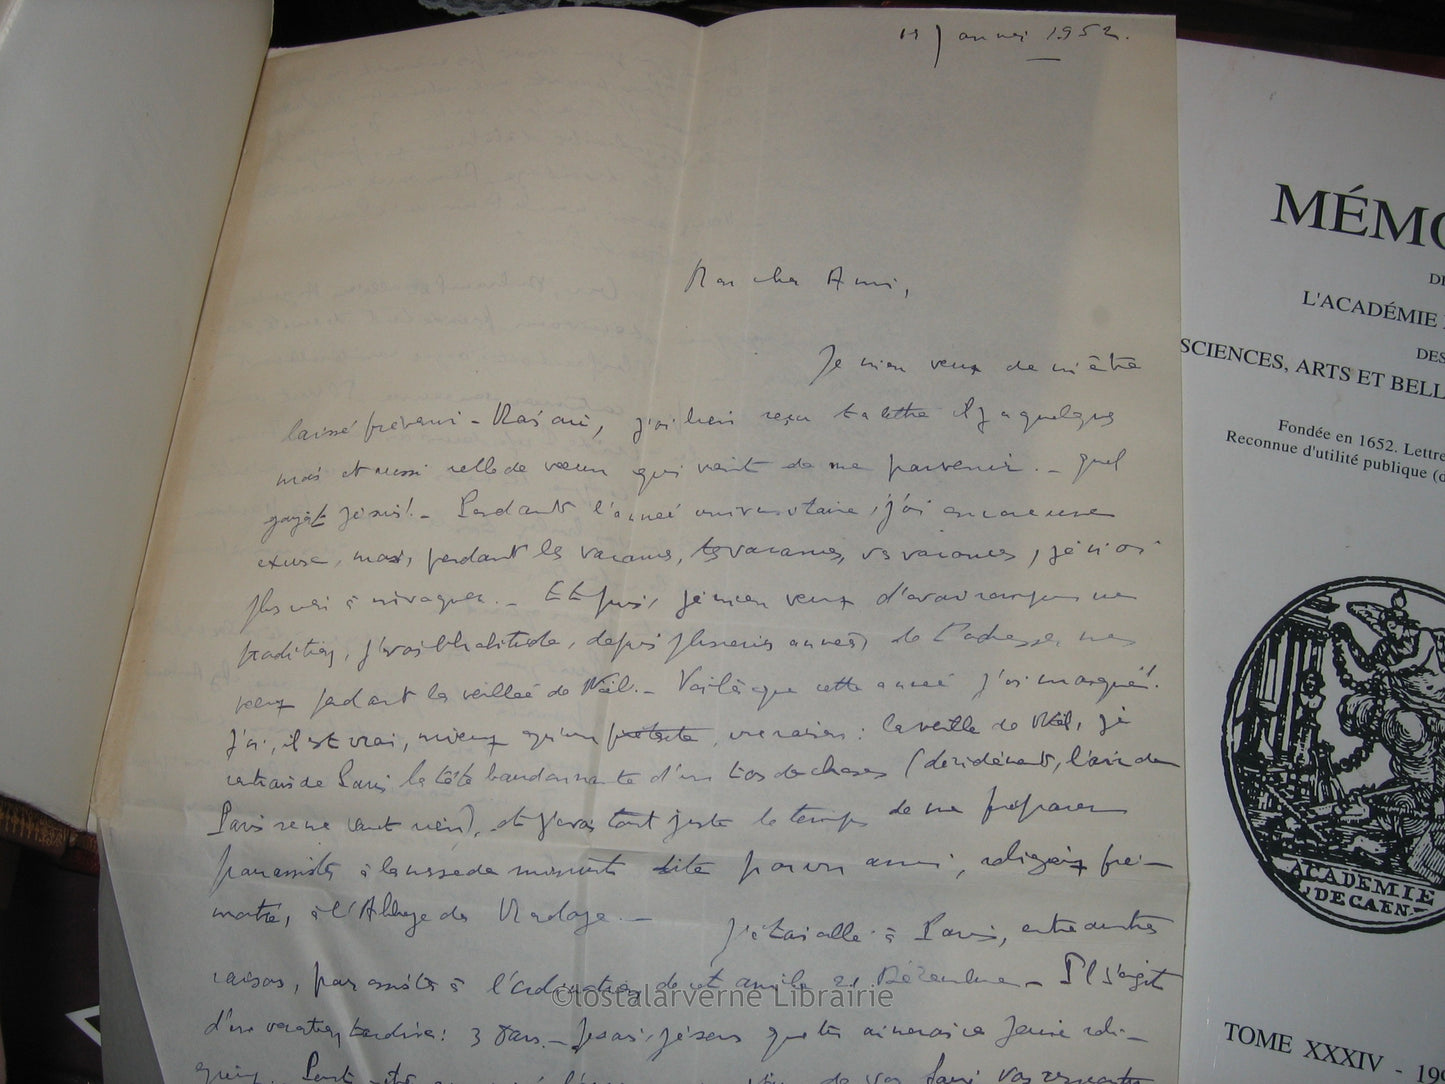 11 Janvier 1952.
Mon cher Ami,
Je m'en veux de m'être
laissé prévenir - Mais oui, j'ai bien reçu ta lettre il y a quelques
mois et aussi celle de vœux qui vient de me parvenir. - Quel
Jésus! - Pendant l'année universitaire, j'ai encore une
excuse, mais, pendant les vacances, les vacances, vos vacances, je n'ai
plus rien à invoquer. - Et puis, je m'en veux d'avoir rompu une
tradition, j'avais l'habitude, depuis plusieurs années de t'adresser mes
vœux pendant la veillée de Noël. - Voilà que cette année j'ai manqué!
J'ai, il est vrai, mieux qu'un prétexte, une raison: la veille de Noël, je
rentrais de Paris la tête bourdonnante d'un tas de choses (décidément, l'air de
Paris ne me vaut rien), et j'avais tout juste le temps de me préparer
pour assister à la messe de minuit dite par un ami, religieux pré-
montré, à l'Abbaye de Mondaye. -
J'étais allé à Paris, entre autres
raisons, pour assister à l'ordination de cet ami le 21 Décembre - Il s'agit
d'une vocation tardive: 3 ans. - Je sais, je sens que tu aimerais ce jeune reli-
gieux.
MÉMO
DE
L'ACADÉMIE
DES
SCIENCES, ARTS ET BELL
Fondée en 1652. Lettre
Reconnue d'utilité publique (d
ACADEMIE
DE CAEN
TOME XXXIV - 199
©lostalarverne Librairie